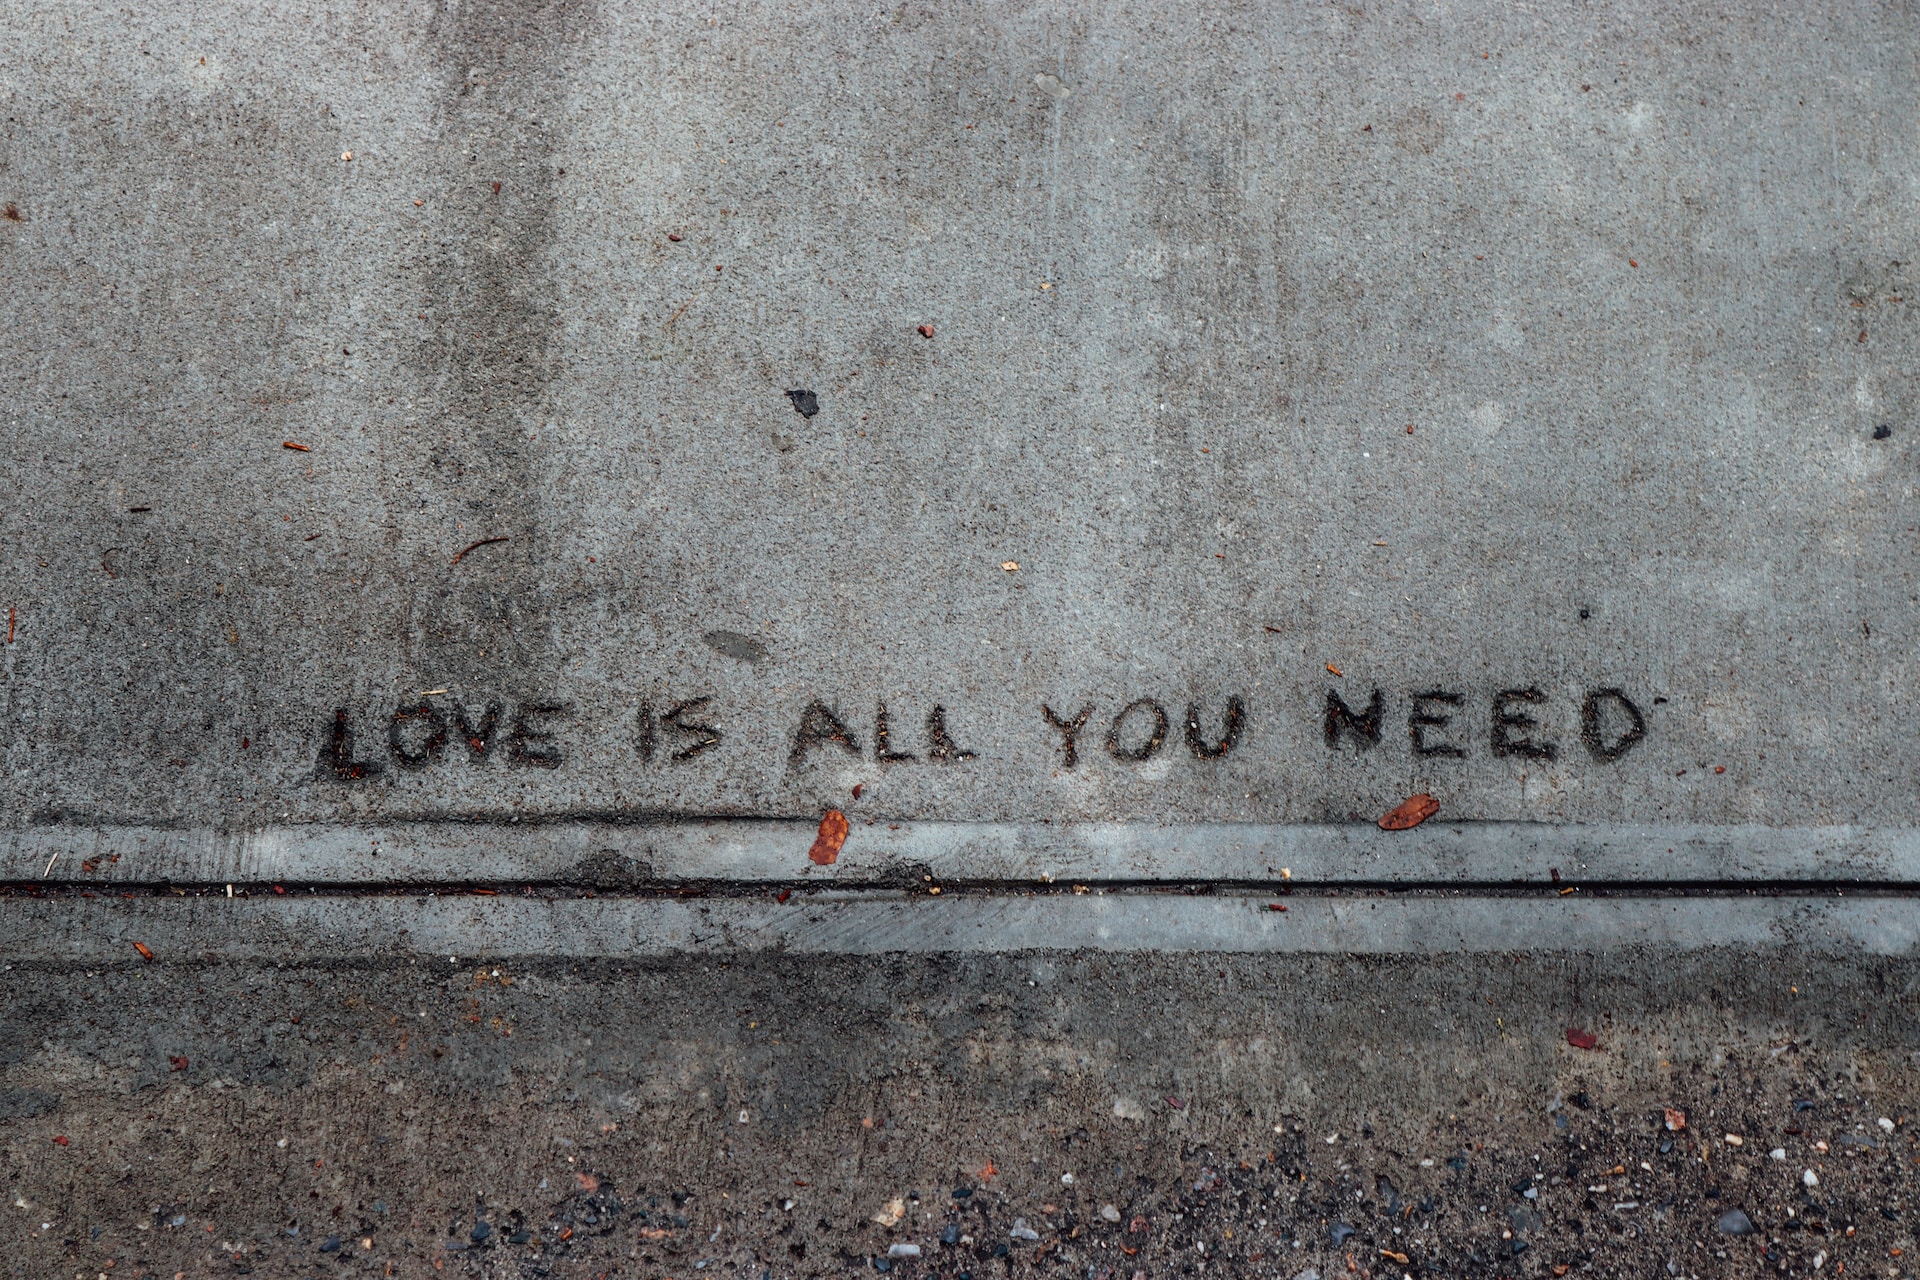 LOVE IS ALL YOU NEED